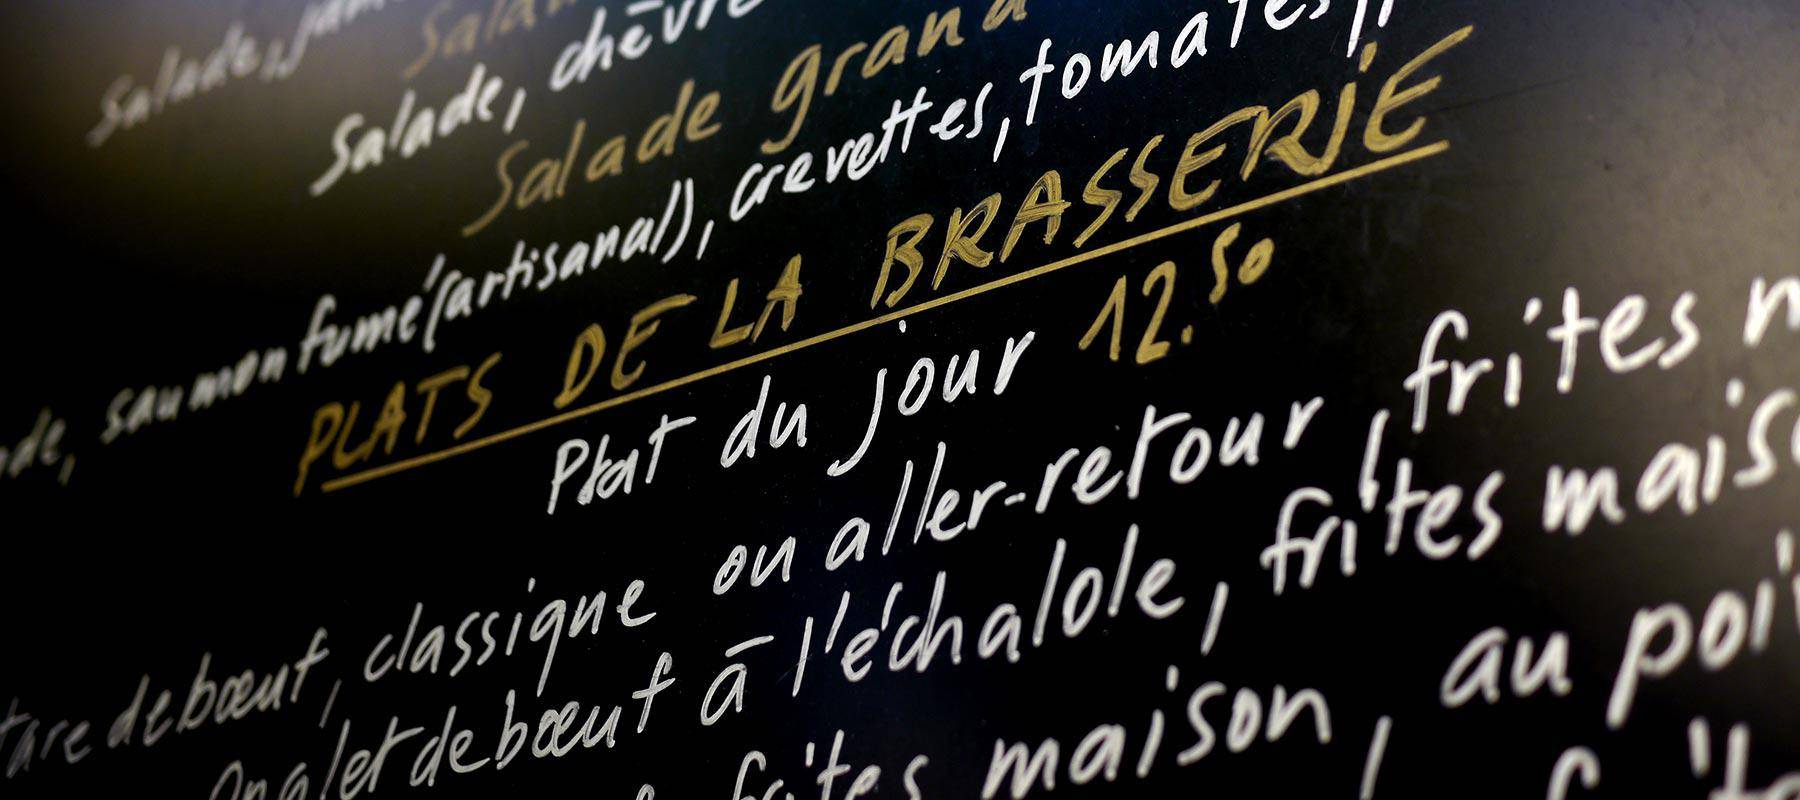 Salade,
Salade, chèvre
Salade grand
saumon fumé (artisanal), crevettes, tomates,
PLATS DE LA BRASSERIE
Plat du jour 12.50
de bœuf, classique ou aller-retour, frites
Onglet de bœuf à l'échalole, frites
frites maison, au